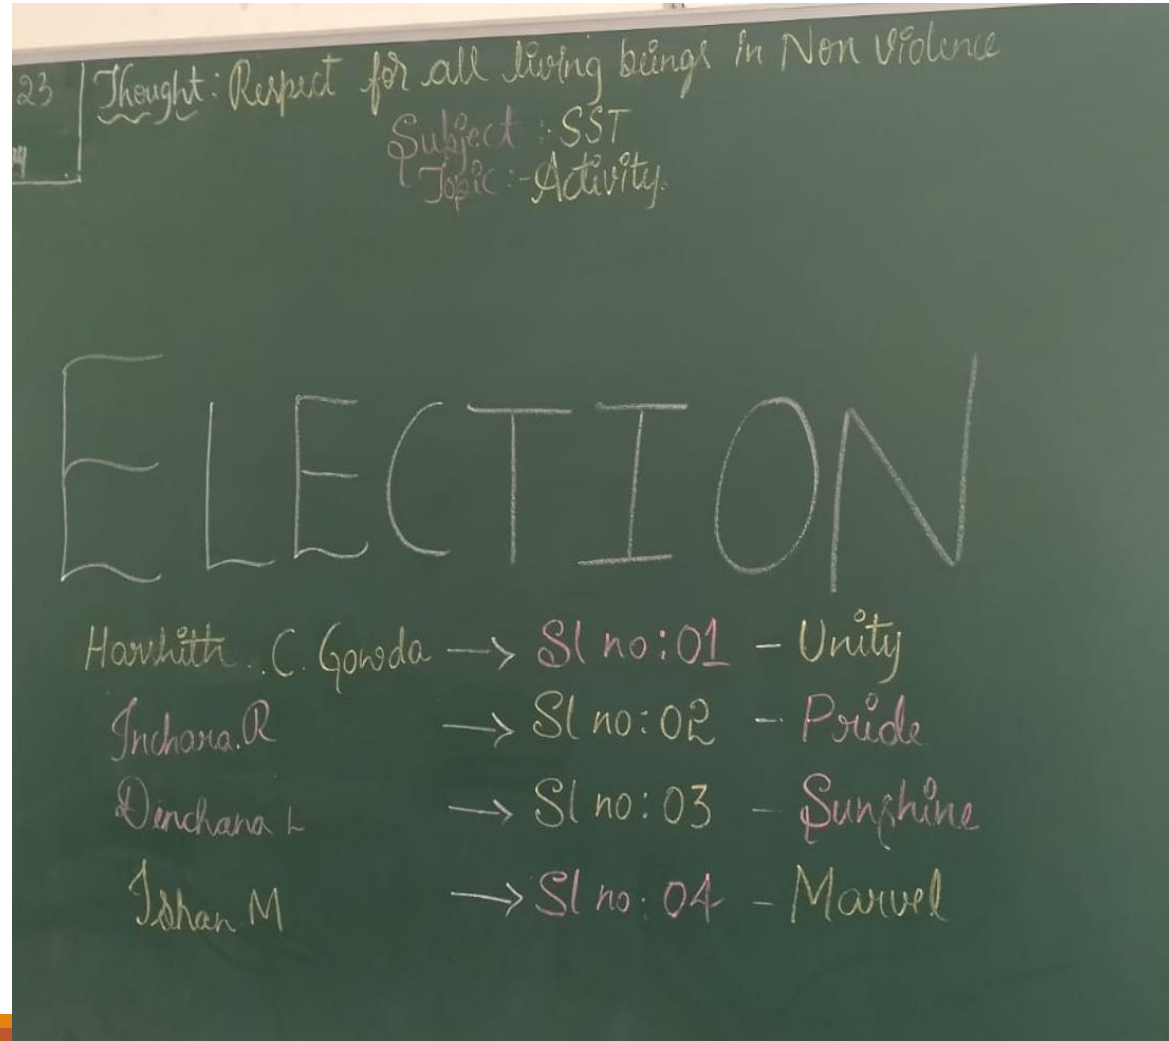 23
Thought: Respect for all living beings in Non Violence
Subject :- SST
Topic :- Activity.
ELECTION
Harshith . C. Gowda → Sl no: 01 - Unity
Inchara.R → Sl no: 02 - Pride
Dinchana L → Sl no: 03 - Sunshine
Ishan M → Sl no: 04 - Marvel